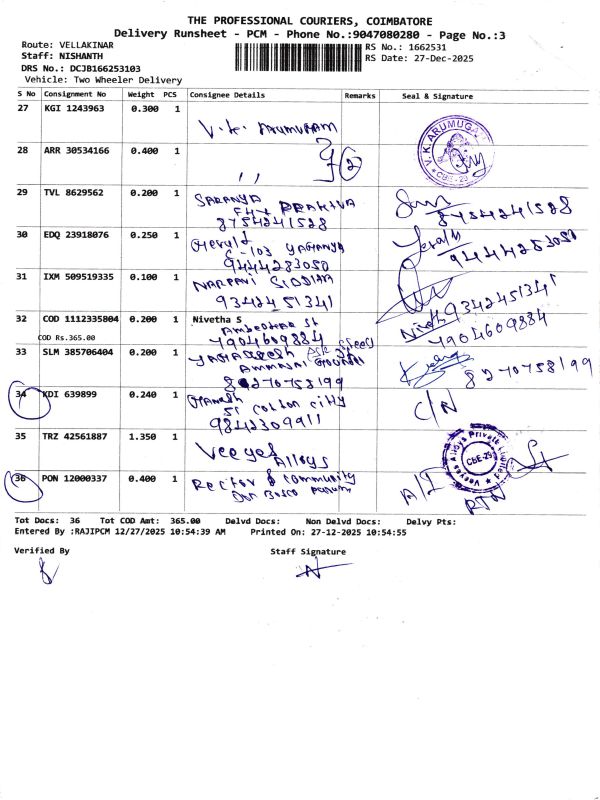 THE PROFESSIONAL COURIERS, COIMBATORE
Delivery Runsheet - PCM - Phone No.:9047080280 - Page No.:3
Route: VELLAKINAR
RS No.: 1662531
Staff: NISHANTH
RS Date: 27-Dec-2025
DRS No.: DCJB166253103
Vehicle: Two Wheeler Delivery
S No Consignment No Weight PCS Consignee Details Remarks Seal & Signature
27 KGI 1243963 0.300 1
V.K. ARUMUGAM
V.K.ARUMUGA
CBE-29
28 ARR 30534166 0.400 1
,, 2
29 TVL 8629562 0.200 1
SARANYA
8754241528
8754241528
30 EDQ 23918076 0.250 1
C-103
9444283050
9444283050
31 IXM 509519335 0.100 1
9342451341
9342451341
32 COD 1112335804 0.200 1 Nivetha S
COD Rs.365.00
7904609884
7904609884
33 SLM 385706404 0.200 1
8270758199
8270758199
34 KDI 639899 0.240 1
Cotton City
9842309911
C/N
35 TRZ 42561887 1.350 1
Veeyes
Alloys
Veeyes Alloys Private Limited
CBE-29
36 PON 12000337 0.400 1
Rector & Community
Don Bosco
RTN
Tot Docs: 36 Tot COD Amt: 365.00 Delvd Docs: Non Delvd Docs: Delvy Pts:
Entered By :RAJIPCM 12/27/2025 10:54:39 AM Printed On: 27-12-2025 10:54:55
Verified By
Staff Signature